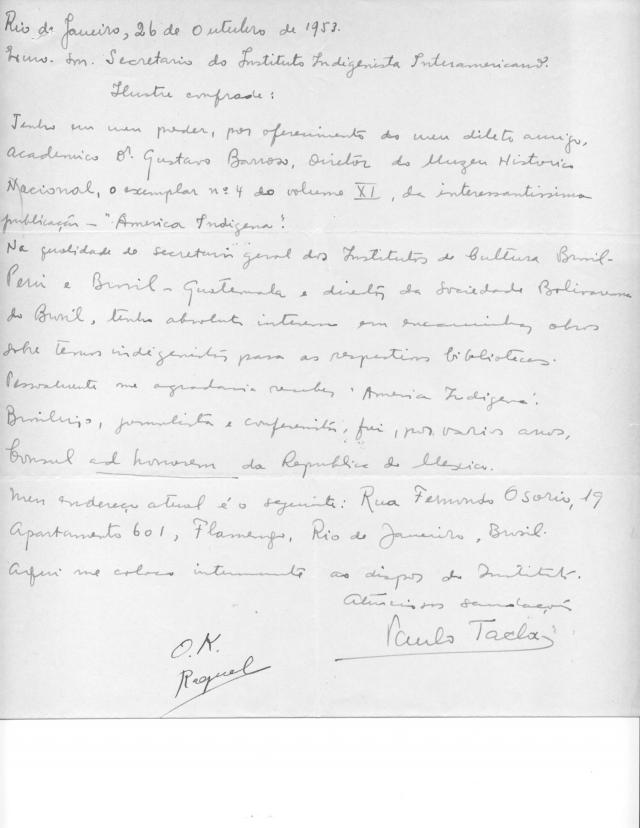 Rio de Janeiro, 26 de Outubro de 1953.
Exmo. Snr. Secretario do Instituto Indigenista Interamericano.
Ilustre confrade:
Tenho em meu poder, por oferecimento do meu dileto amigo,
academico Dr. Gustavo Barroso, Diretor do Muzeu Historico
Nacional, o exemplar nº 4 do volume XI, da interessantissima
publicação - "America Indigena".
Na qualidade de secretario geral dos Institutos de Cultura Brasil-
Perú e Brasil-Guatemala e diretor da Sociedade Bolivariana
do Brasil, tenho absoluto interesse em encaminhar obras
sobre temas indigenistas para as respectivas bibliotecas.
Pessoalmente me agradaria receber "America Indigena".
Brasileiro, jornalista e conferencista, fui, por varios anos,
Consul ad honorem da Republica do Mexico.
Meu endereço atual é o seguinte: Rua Fernando Osorio, 19
Apartamento 601, Flamengo, Rio de Janeiro, Brasil.
Aqui me coloco inteiramente ao dispor do Instituto.
Atenciosas saudações
Paulo Tacla
O.K.
Raquel